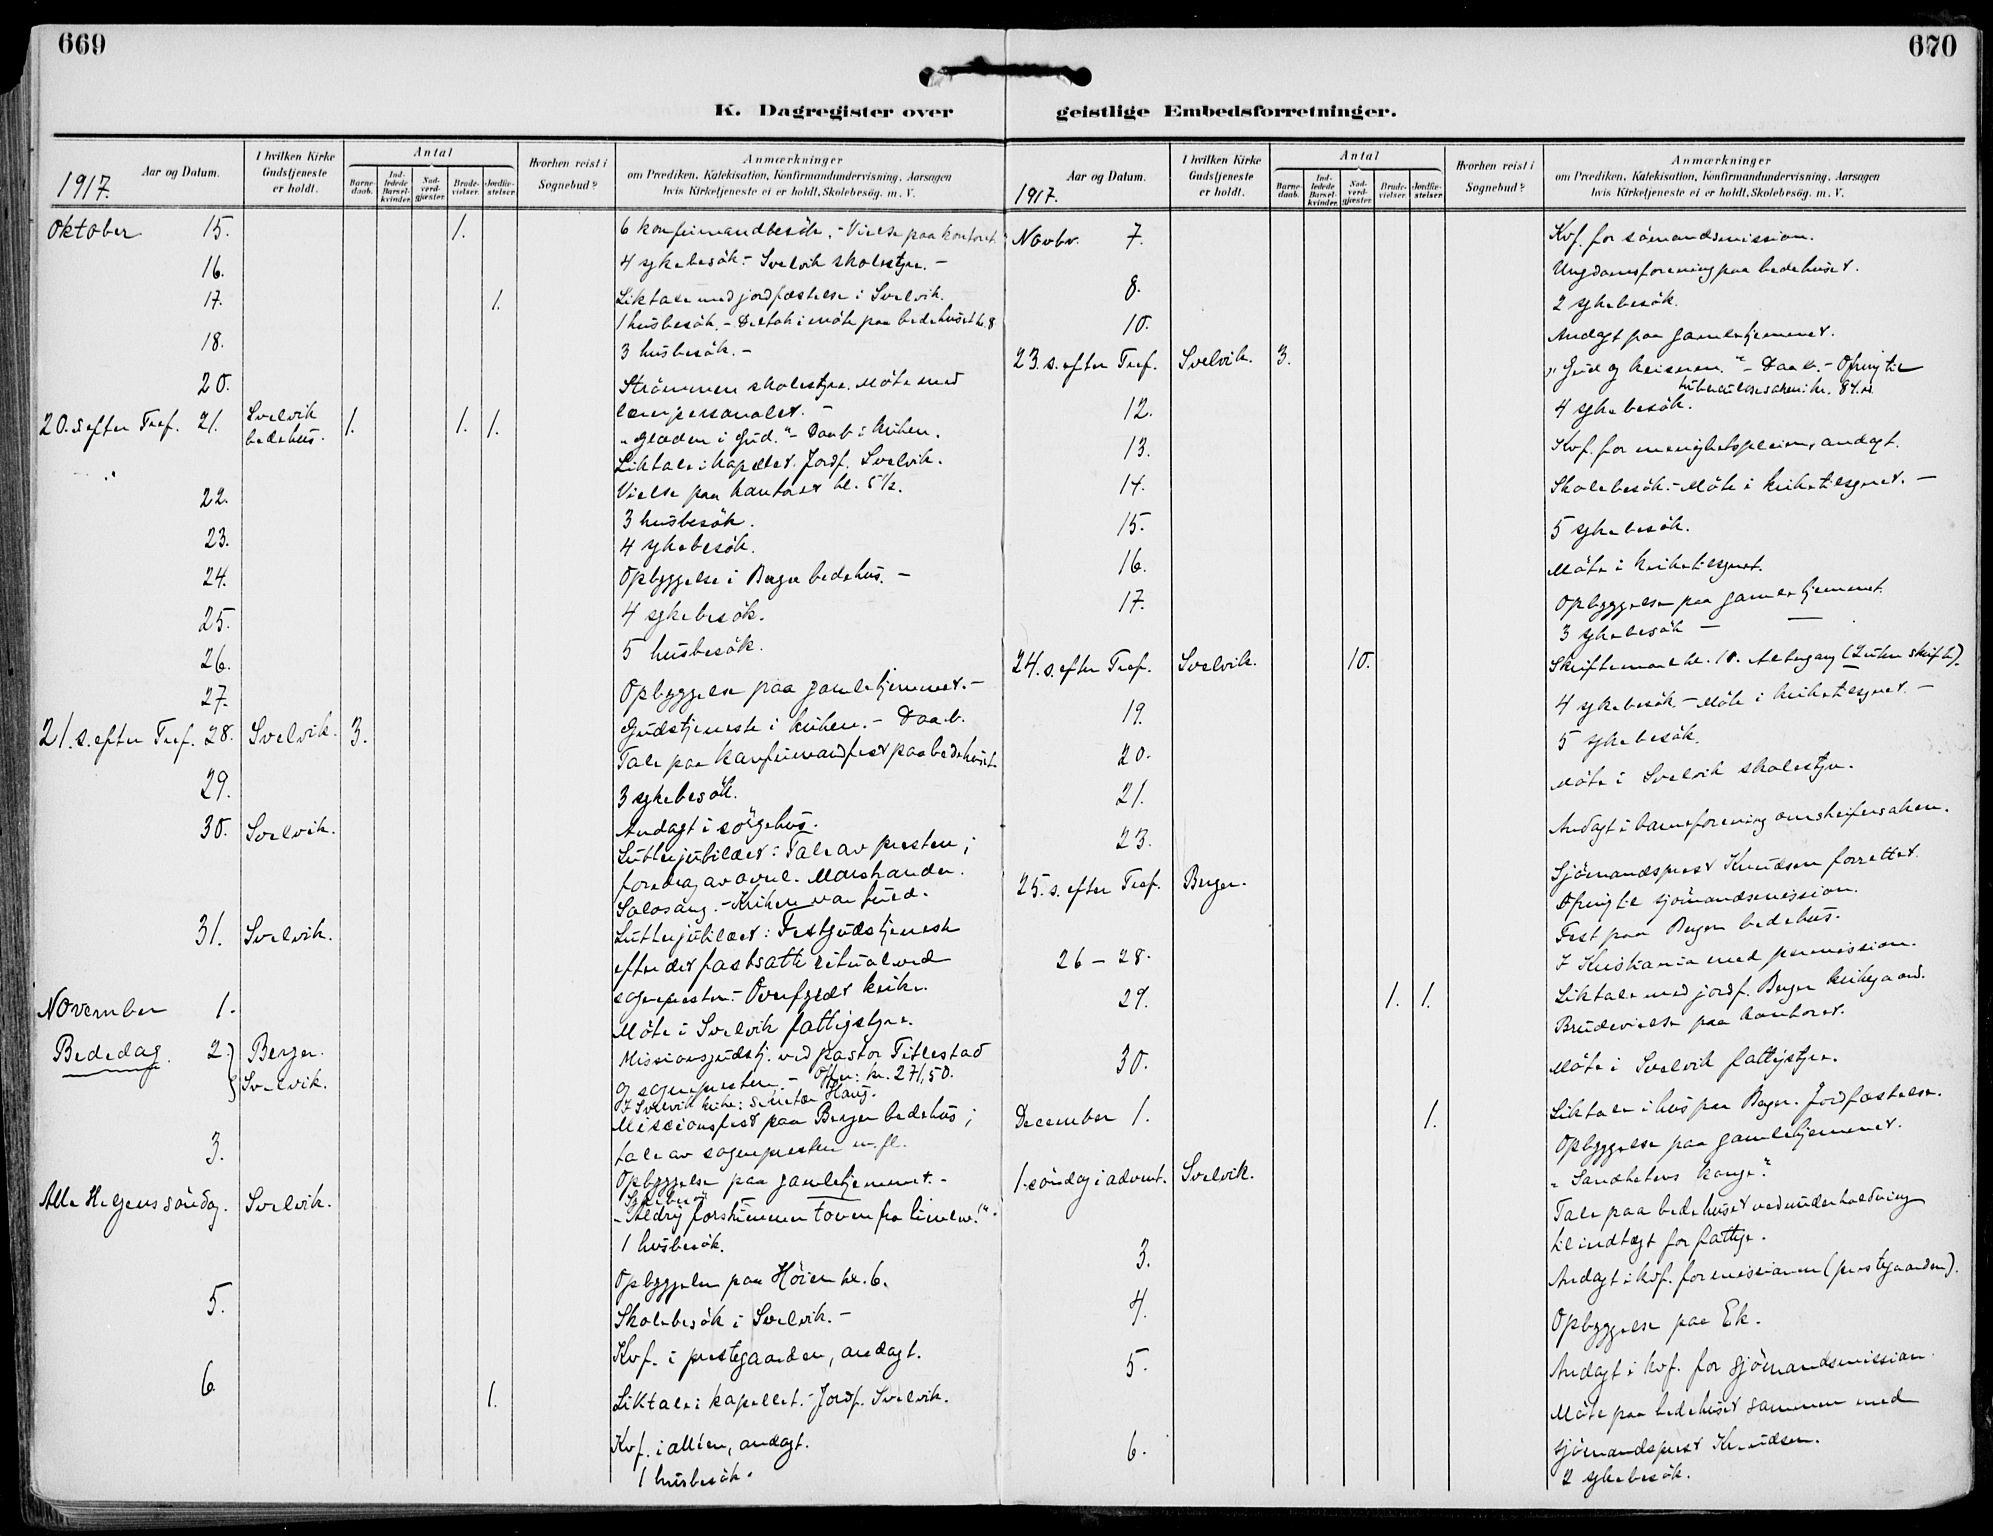 669
K. Dagregister over
1917.
Aar og Datum.
I hvilken Kirke Gudstjeneste er holdt.
Antal
Barne-daab.
Ind-ledede Barsel-kvinder.
Nad-verd-gjæster.
Brude-vielser.
Jordfæ-stelser.
Hvorhen reist i Sognebud?
Anmærkninger
om Prædiken, Katekisation, Konfirmandundervisning, Aarsagen
hvis Kirketjeneste ei er holdt, Skolebesøg. m. V.
Oktober 15. 1. 6 konfirmandbesök. - Vielse paa kontoret.
16. 4 sykebesök. - Svelvik skolestyre. -
17. 1. Liktale med jordfæstelse i Svelvik.
1 husbesök. - Deltok i möte paa bedehuset kl. 8
18. 3 husbesök. -
20. Strömmen skolestyre. Möte med
lærerpersonalet. -
20. s. efter Tref. 21. Svelvik bedehus. 1. 1. 1. "Glæden i Gud." - Daab i kirken.
Liktale i kapellet. Jordf. Svelvik.
Vielse paa kontoret kl. 5½.
22. 3 husbesök.
23. 4 sykebesök.
24. Opbyggelse i Berger bedehus. -
25. 4 sykebesök.
26. 5 husbesök.
27. Opbyggelse paa gamlehjemmet. -
21. s. efter Tref. 28. Svelvik. 3. Gudstjeneste i kirken. - Daab.
Tale paa konfirmandfest paa bedehuset.
29. 3 sykebesök.
30. Svelvik. Andagt i sörgehus.
Lutherjubilæet: Tale av presten;
foredrag av overl. Marstrander.
Solosang. - Kirken var fuld.
31. Svelvik. Lutherjubilæet: Festgudstjeneste
efter det fastsatte ritual ved
sognepresten. - Overfyldt kirke.
November 1. Möte i Svelvik fattigstyre.
Bededag. 2. Berger. Svelvik. Missionsgudstj. ved pastor Titlestad
og sognepresten. - Offer: kr. 271,50.
I Svelvik kirke: Sekretær Haug.
Missionsfest paa Berger bedehus;
tale av sognepresten m. fl.
3. Opbyggelse paa gamlehjemmet. -
Sykebesök
Alle Helgens söndag. Svelvik. "Aldrig forstummer tonen fra himlen!"
1 husbesök.
Opbyggelse paa Höien kl. 6.
5. Skolebesök i Svelvik. -
Kvf. i prestegaarden, andagt.
6. 1. Liktale i kapellet. - Jordf. Svelvik.
Kvf. i alléen, andagt.
1 husbesök.
670
geistlige Embedsforretninger.
1917.
Aar og Datum.
I hvilken Kirke Gudstjeneste er holdt.
Antal
Barne-daab.
Ind-ledede Barsel-kvinder.
Nad-verd-gjæster.
Brude-vielser.
Jordfæ-stelser.
Hvorhen reist i Sognebud?
Anmærkninger
om Prædiken, Katekisation, Konfirmandundervisning, Aarsagen
hvis Kirketjeneste ei er holdt, Skolebesög. m. V.
Novbr. 7. Kvf. for sömandsmission.
Ungdomsforening paa bedehuset.
8. 2 sykebesök.
10. Andagt paa gamlehjemmet.
23. s. efter Tref. Svelvik. 3. "Gud og keiseren." - Daab. - Ofring til
tuberkulosesaken: kr. 84.
12. 4 sykebesök.
13. Kvf. for menighetspleien, andagt.
14. Skolebesök. - Möte i kirketilsynet. -
15. 5 sykebesök.
16. Möte i kirketilsynet.
17. Opbyggelse paa gamlehjemmet.
3 sykebesök -
24. s. efter Tref. Svelvik. 10. Skriftemaal kl. 10. Altergang (2 uten skrifte).
19. 4 sykebesök. - Möte i kirketilsynet. -
20. 5 sykebesök.
21. Möte i Svelvik skolestyre.
23. Andagt i barneforening
25. s. efter Tref. Berger. Sjömandsprest Knudsen forrettet.
Ofring til sjömandsmission.
Fest paa Berger bedehus.
26 - 28. I Kristiania med permission.
29. 1. 1. Liktale med jordf. Berger kirkegaard.
Brudevielse paa kontoret.
30. Möte i Svelvik fattigstyre.
December 1. 1. Liktale i hus paa Berger. Jordfæstelse.
Opbyggelse paa gamlehjemmet.
1. söndag i advent. Svelvik. "Sandhetens konge."
Tale paa bedehuset ved underholdning
til indtægt for fattige.
3. Andagt i kvf. for missionen (prestegaarden).
4. Opbyggelse paa Ek.
5. Andagt i kvf. for sjömandsmission.
Möte paa bedehuset sammen med
sjömandsprest Knudsen.
6. 2 sykebesök.